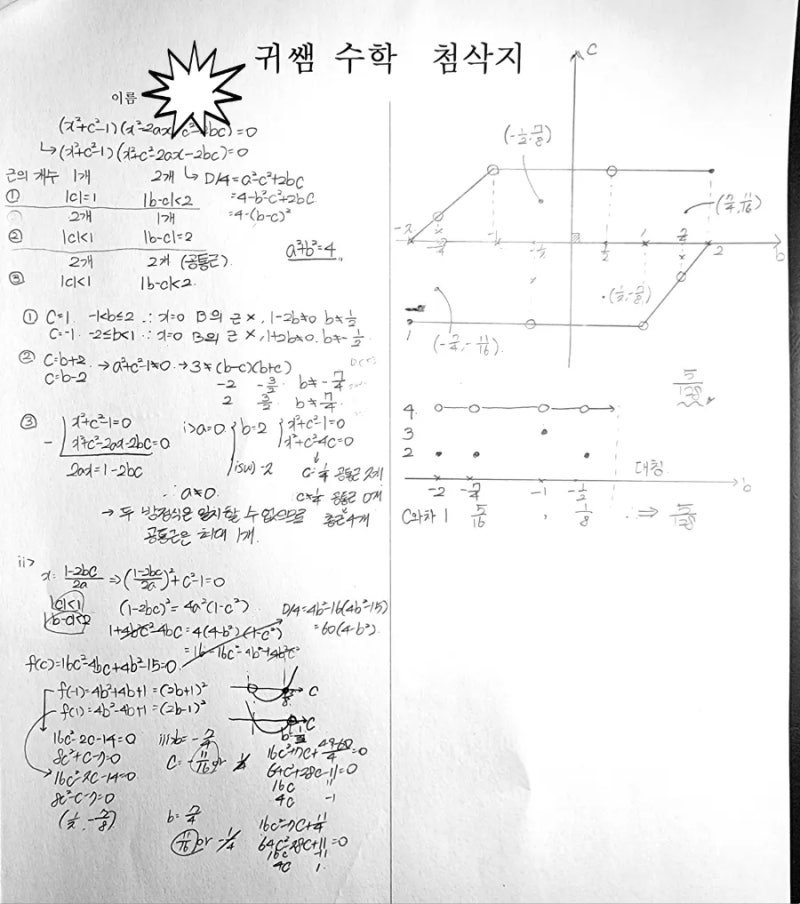 귀쌤 수학 첨삭지
이름
(x²+c²-1)(x²-2ax+c²-2bc)=0
↳(x²+c²-1)(x²+c²-2ax-2bc)=0
근의 개수 1개 2개 ↳ D/4=a²-c²+2bc
① |c|=1 |b-c|<2 =4-b²-c²+2bc
2개 1개 =4-(b-c)²
② |c|<1 |b-c|=2
2개 2개 (공통근). a²+b²=4
③ |c|<1 |b-c|<2
① C=1. -1<b≤2 ∴ x=0 B의 근 ×, 1-2b≠0 b≠1/2
C=-1. -2≤b<1 ∴ x=0 B의 근 ×, 1+2b≠0. b≠-1/2
② C=b+2. → a²+c²-1≠0 → 3≠(b-c)(b+c)
C=b-2
-2 -3/2 b≠-7/4
2 3/2 b≠7/4
③ x²+c²-1=0
- x²+c²-2ax-2bc=0
2ax=1-2bc
i> a=0. b=2 x²+c²-1=0
x²+c²-4c=0
↓
C=1/4 공통근 2개
C≠1/4 공통근 0개
총근 4개
∴ a≠0.
→ 두 방정식은 일치할 수 없으므로
공통근은 최대 1개.
ii>
x= (1-2bc)/2a ⇒ ((1-2bc)/2a)²+c²-1=0
|c|<1
|b-c|<2
(1-2bc)²=4a²(1-c²)
1+4b²c²-4bc=4(4-b²)(1-c²)
=16-16c²-4b²+4b²c²
D/4=4b²-16(4b²-15)
=60(4-b²)
f(c)=16c²-4bc+4b²-15=0
f(-1)=4b²+4b+1=(2b+1)²
f(1)=4b²-4b+1=(2b-1)²
16c²-2c-14=0
8c²+c-7=0
16c²-2c-14=0
8c²-c-7=0
(1/2, -7/8)
iii> b=-7/4
C=-11/16 or
16c²+7c+(49-60)/4=0
64c²+28c-11=0
16c 11
4c -1
b=7/4
11/16 or -1/4
16c²-7c+11/4
64c²-28c+11=0
16c -11
4c 1
C
(-1/2, 7/8)
(7/4, 11/16)
-2 -7/4 -1 -1/2 1/2 1 7/4 2 b
(1/2, -7/8)
(-7/4, -11/16)
5/128
4
3
2
대칭
-2 -7/4 -1 -1/2 b
C와차 1 5/16 , 1/8 ∴ ⇒ 5/128